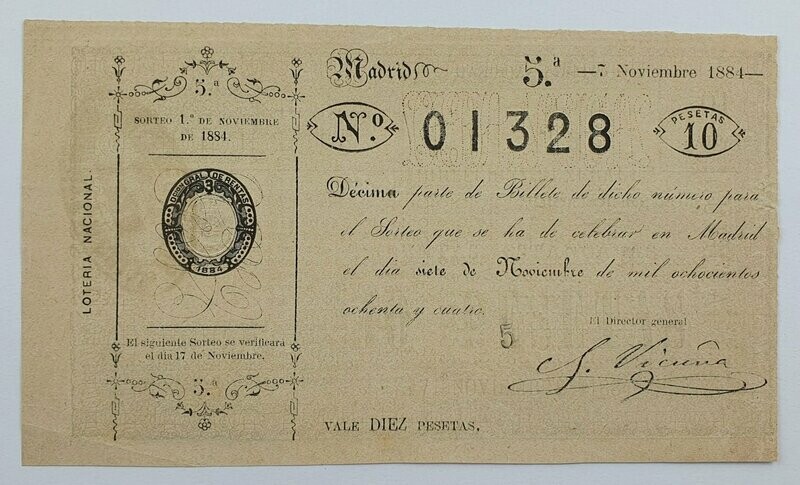 LOTERIA NACIONAL.
5.ª
SORTEO 1.º DE NOVIEMBRE
DE 1884.
DON GRAL DE RENTAS
1884
El siguiente Sorteo se verificará
el día 17 de Noviembre.
5.ª
Madrid 5.ª —7 Noviembre 1884—
N.º 01328 PESETAS 10
Décima parte de Billete de dicho número para
el Sorteo que se ha de celebrar en Madrid
el dia siete de Noviembre de mil ochocientos
ochenta y cuatro.
5
El Director general
S. Vicuña
VALE DIEZ PESETAS.